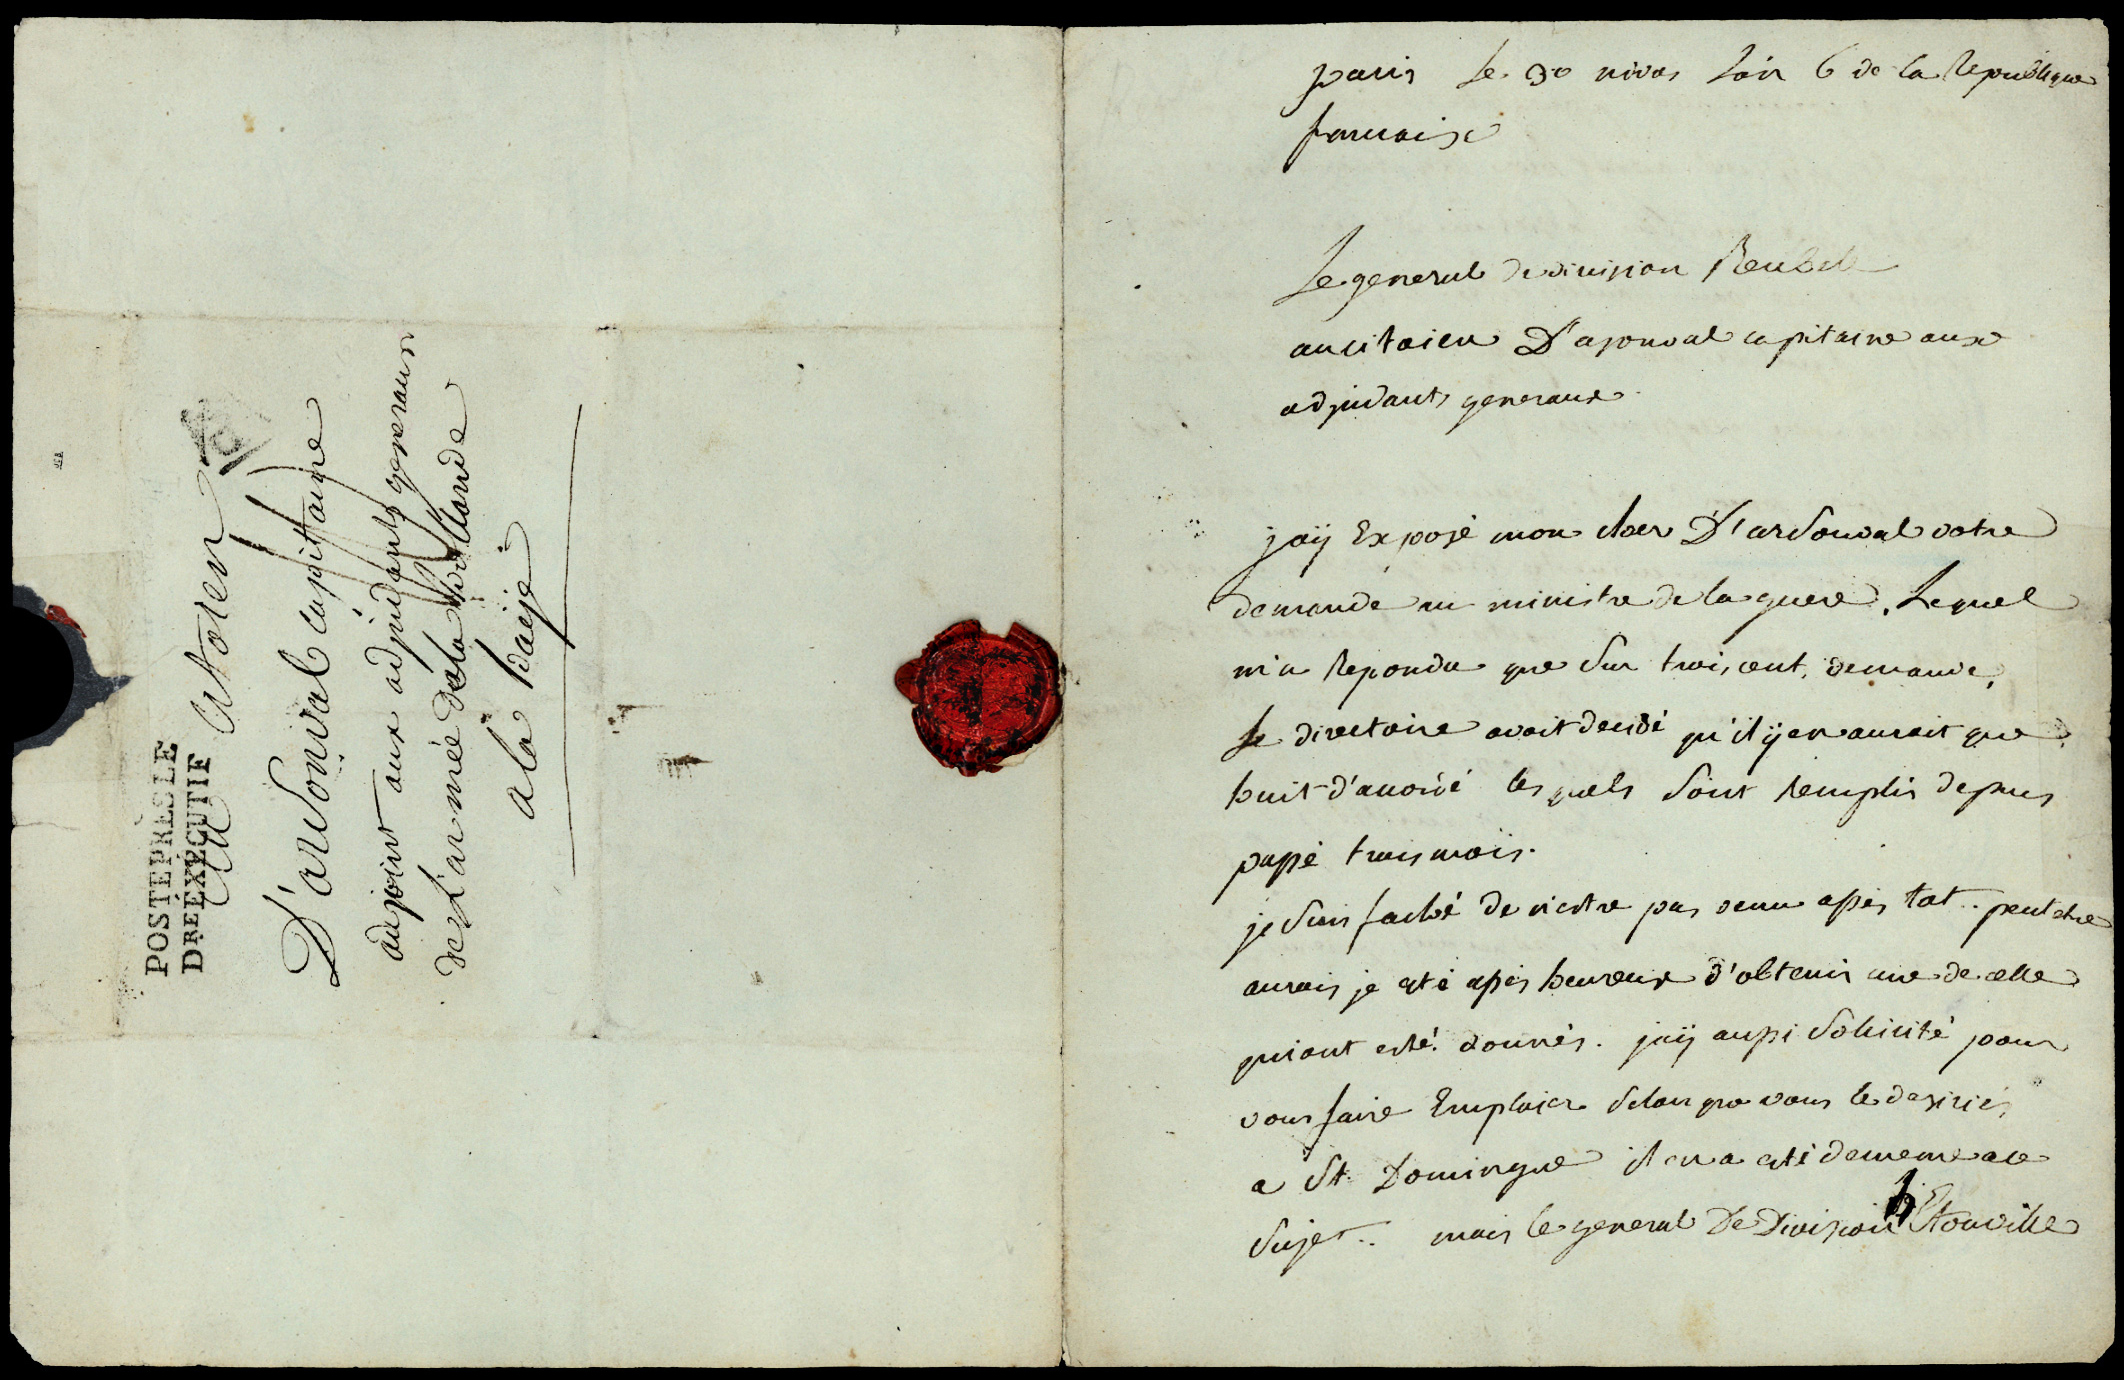 POSTE PRES LE
DRE EXÉCUTIF
au Citoien
D'arsonval capitaine
adjoint aux adjudants generaux
de L'armée de la hollande
a la haije
paris le 30 nivos L'ain 6 de la Republique
francaise
Le general de division Reubell
au citoien D'arsonval capitaine aux
adjudants generaux
jaÿ Exposé mon cher D'arsonval votre
demande au ministre de la guere, Lequel
m'a repondu que sur trois cent demande,
le directoire avoit decidé qu'il ÿ en auroit que
huit d'accordé les quels sont remplis depuis
passé trois mois.
je suis faché de n'estre pas venu assés tot.. peut etre
aurais je esté assés heureux d'obtenir une de celle
qui ont esté donnés. jaÿ aussi solicité pour
vous faire Emploier selon que vous le desiriés
a St. Domingue il en a esté de meme a ce
sujet.. mais le general De Division hÉtouville